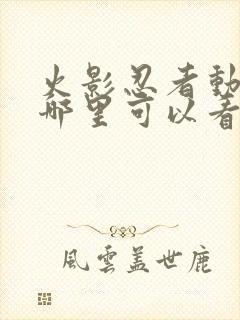 火影忍者動
哪里可以看
風雲蓋世鹿